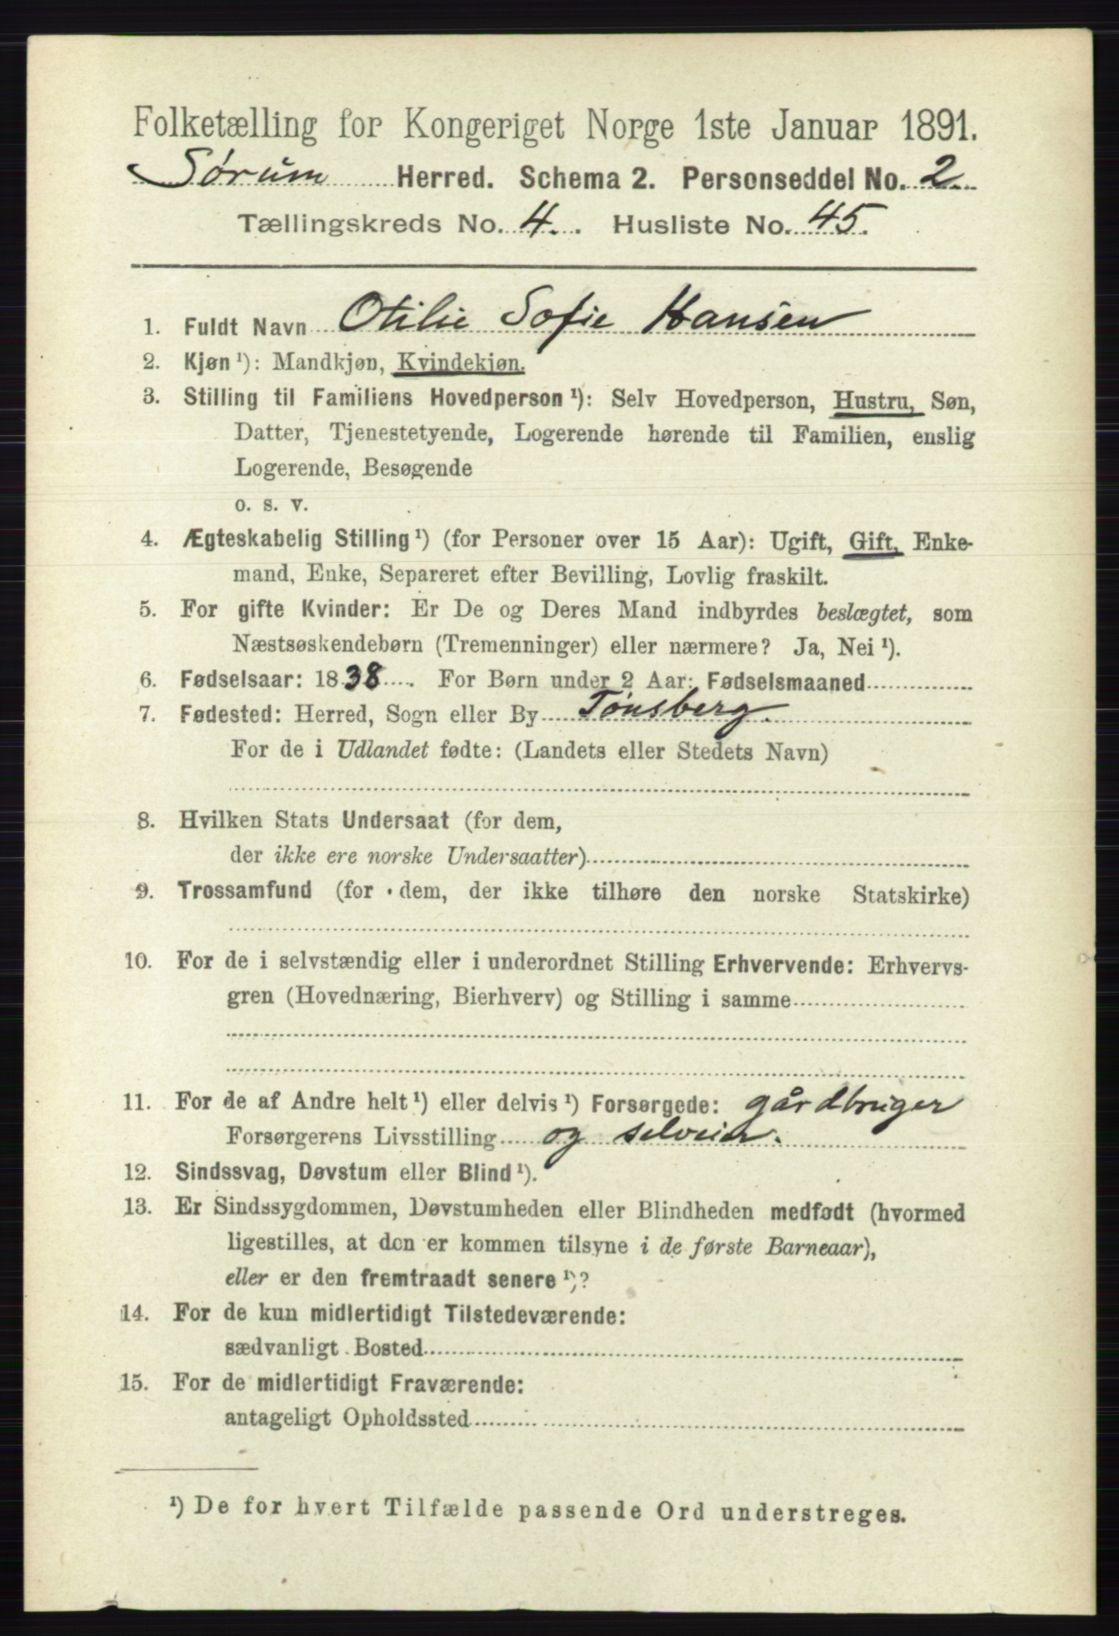 Folketælling for Kongeriget Norge 1ste Januar 1891.
Sørum Herred. Schema 2. Personseddel No. 2.
Tællingskreds No. 4. Husliste No. 45.
1. Fuldt Navn Otilie Sofie Hansen
2. Kjøn ¹): Mandkjøn, Kvindekjøn.
3. Stilling til Familiens Hovedperson ¹): Selv Hovedperson, Hustru, Søn,
Datter, Tjenestetyende, Logerende hørende til Familien, enslig
Logerende, Besøgende
o. s. v.
4. Ægteskabelig Stilling ¹) (for Personer over 15 Aar): Ugift, Gift, Enke-
mand, Enke, Separeret efter Bevilling, Lovlig fraskilt.
5. For gifte Kvinder: Er De og Deres Mand indbyrdes beslægtet, som
Næstsøskendebørn (Tremenninger) eller nærmere? Ja, Nei ¹).
6. Fødselsaar: 1838. For Børn under 2 Aar: Fødselsmaaned
7. Fødested: Herred, Sogn eller By Tønsberg.
For de i Udlandet fødte: (Landets eller Stedets Navn)
8. Hvilken Stats Undersaat (for dem,
der ikke ere norske Undersaatter)
9. Trossamfund (for dem, der ikke tilhøre den norske Statskirke)
10. For de i selvstændig eller i underordnet Stilling Erhvervende: Erhvervs-
gren (Hovednæring, Bierhverv) og Stilling i samme
11. For de af Andre helt ¹) eller delvis ¹) Forsørgede: gårdbruger
Forsørgerens Livsstilling og selveier.
12. Sindssvag, Døvstum eller Blind ¹).
13. Er Sindssygdommen, Døvstumheden eller Blindheden medfødt (hvormed
ligestilles, at den er kommen tilsyne i de første Barneaar),
eller er den fremtraadt senere ¹)?
14. For de kun midlertidigt Tilstedeværende:
sædvanligt Bosted
15. For de midlertidigt Fraværende:
antageligt Opholdssted
¹) De for hvert Tilfælde passende Ord understreges.